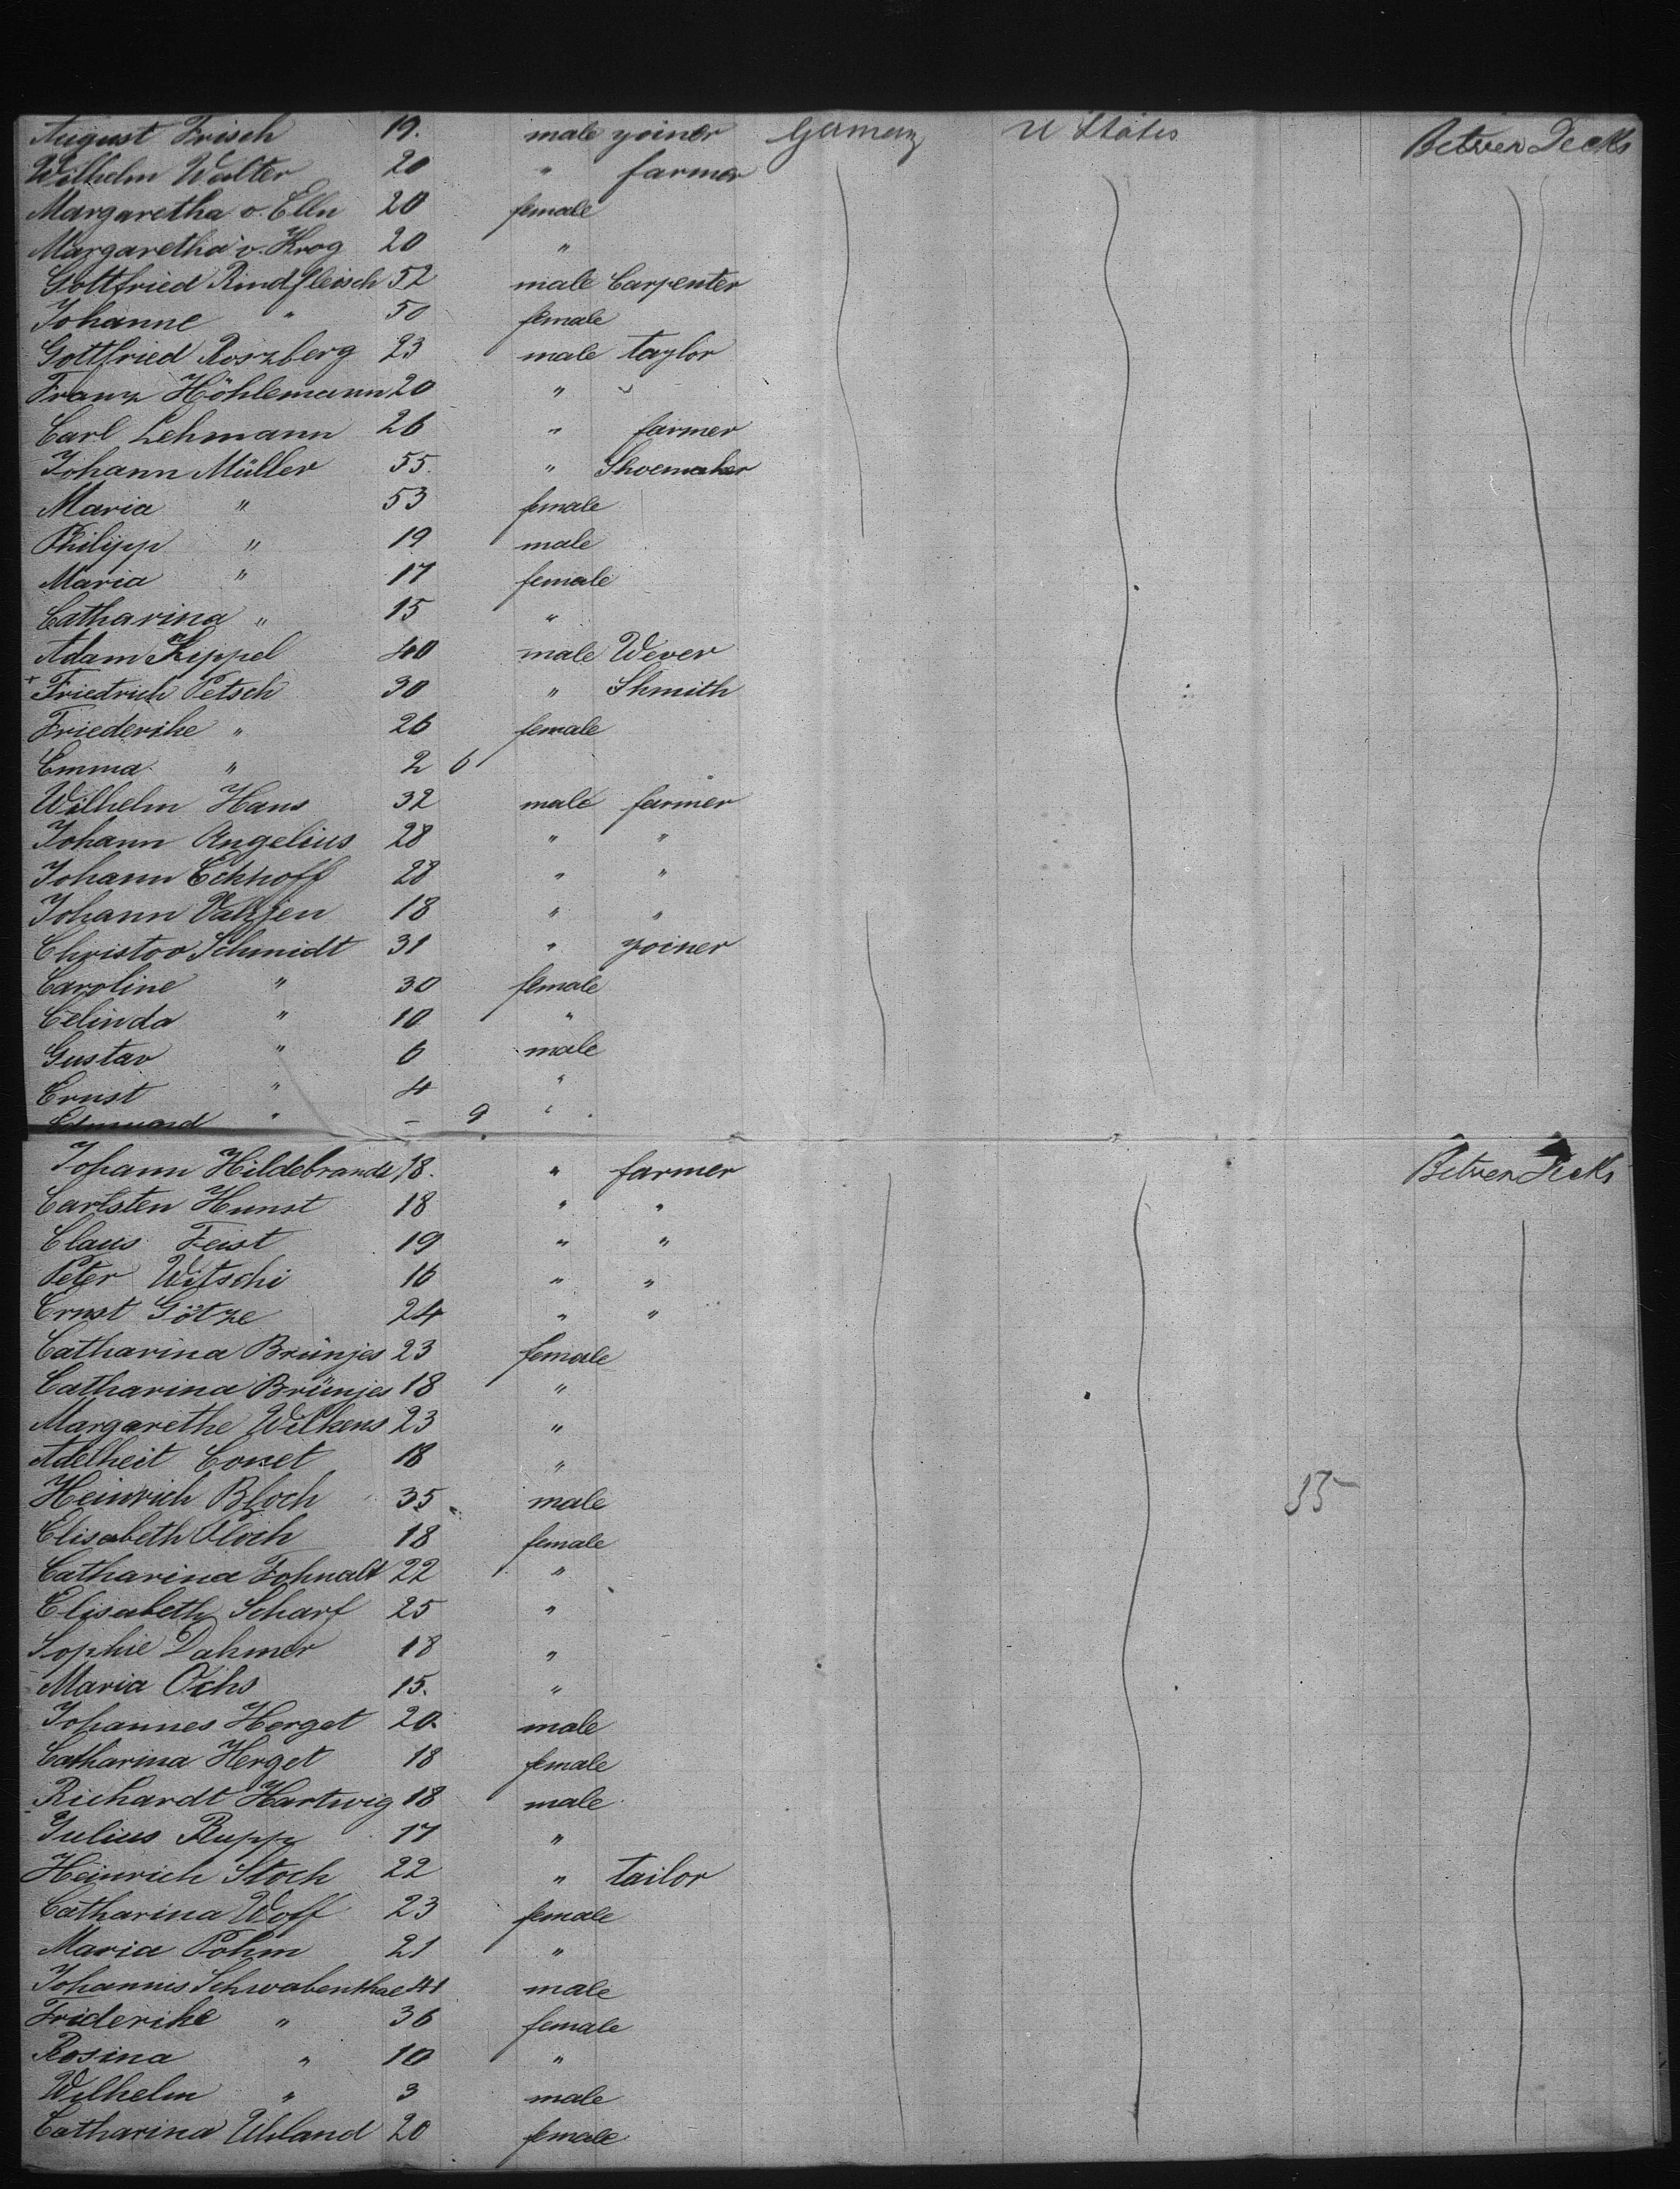 August Frisch 19. male yoiner Germany U States Betwen Decks
Wilhelm Walter 20 " farmer
Margaretha v. Elln 20 female
Margaretha v. Krog 20 "
Gottfried Rindfleisch 52 male Carpenter
Johanne " 50 female
Gottfried Roszberg 23 male taylor
Franz Höhlemann 20 " "
Carl Lehmann 26 " farmer
Johann Müller 55. " Shoemaker
Maria " 53 female
Philipp " 19 male
Maria " 17 female
Catharina " 15 "
Adam Keppel 40 male Wever
+ Friedrich Petsch 30 " Shmith
Friederike " 26 female
Emma " 2 6
Wilhelm Hans 32 male farmer
Johann Angelius 28 " "
Johann Eckhoff 28 " "
Johann 18 " "
Christoo Schmidt 31 " yoiner
Caroline " 30 female
Celinda " 10 "
Gustav " 6 male
Ernst " 4 "
Edmuard " - 9 "
Johann Hildebrandt 18. " farmer Betwen Decks
Carlsten Hunst 18 " "
Claus Feist 19 " "
Peter Witschi 16 " "
Ernst Götze 24 " "
Catharina Brünjes 23 female
Catharina Brünjes 18 "
Margarethe Wilkens 23 "
Adelheit 18 "
Heinrich Bloch 35 male
Elisabeth Bloch 18 female
Catharina 22 "
Elisabeth Scharf 25 "
Sophie Dahmer 18 "
Maria Ochs 15. "
Johannes Herget 20 male
Catharina Herget 18 female
Richardt Hartwig 18 male
Julius Rupp 17 "
Heinrich Stoch 22 " tailor
Catharina Woff 23 female
Maria Pohm 21 "
Johannis Schwabenthae 41 male
Friderike " 36 female
Rosina " 10 "
Wilhelm " 3 male
Catharina Uhland 20 female